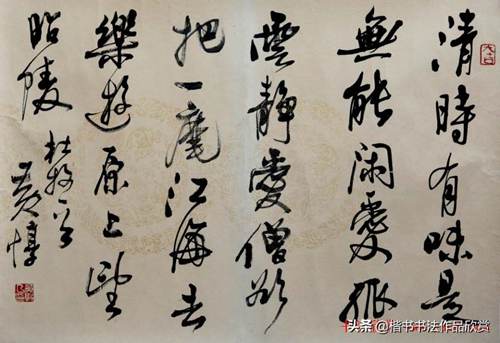 清時有味是
無能闲愛孤
雲靜愛僧欲
把一麾江海去
樂遊原上望
昭陵
杜牧
黄惇
头条 @楷书书法作品欣赏